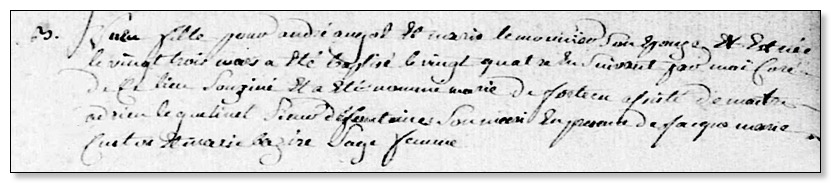 3. Une fille pour andré angot & marie lemonnier son epouse & est née
le vingt trois mars a été baptisé le vingt quatre du suivant par moi Curé
de Ce lieu Soussiné & a été nommé marie de assistée de maitre
adrien lequelinel Sieur des fontaines Son mari En presence de Jacque marie
Custos & marie lezire Sage femme